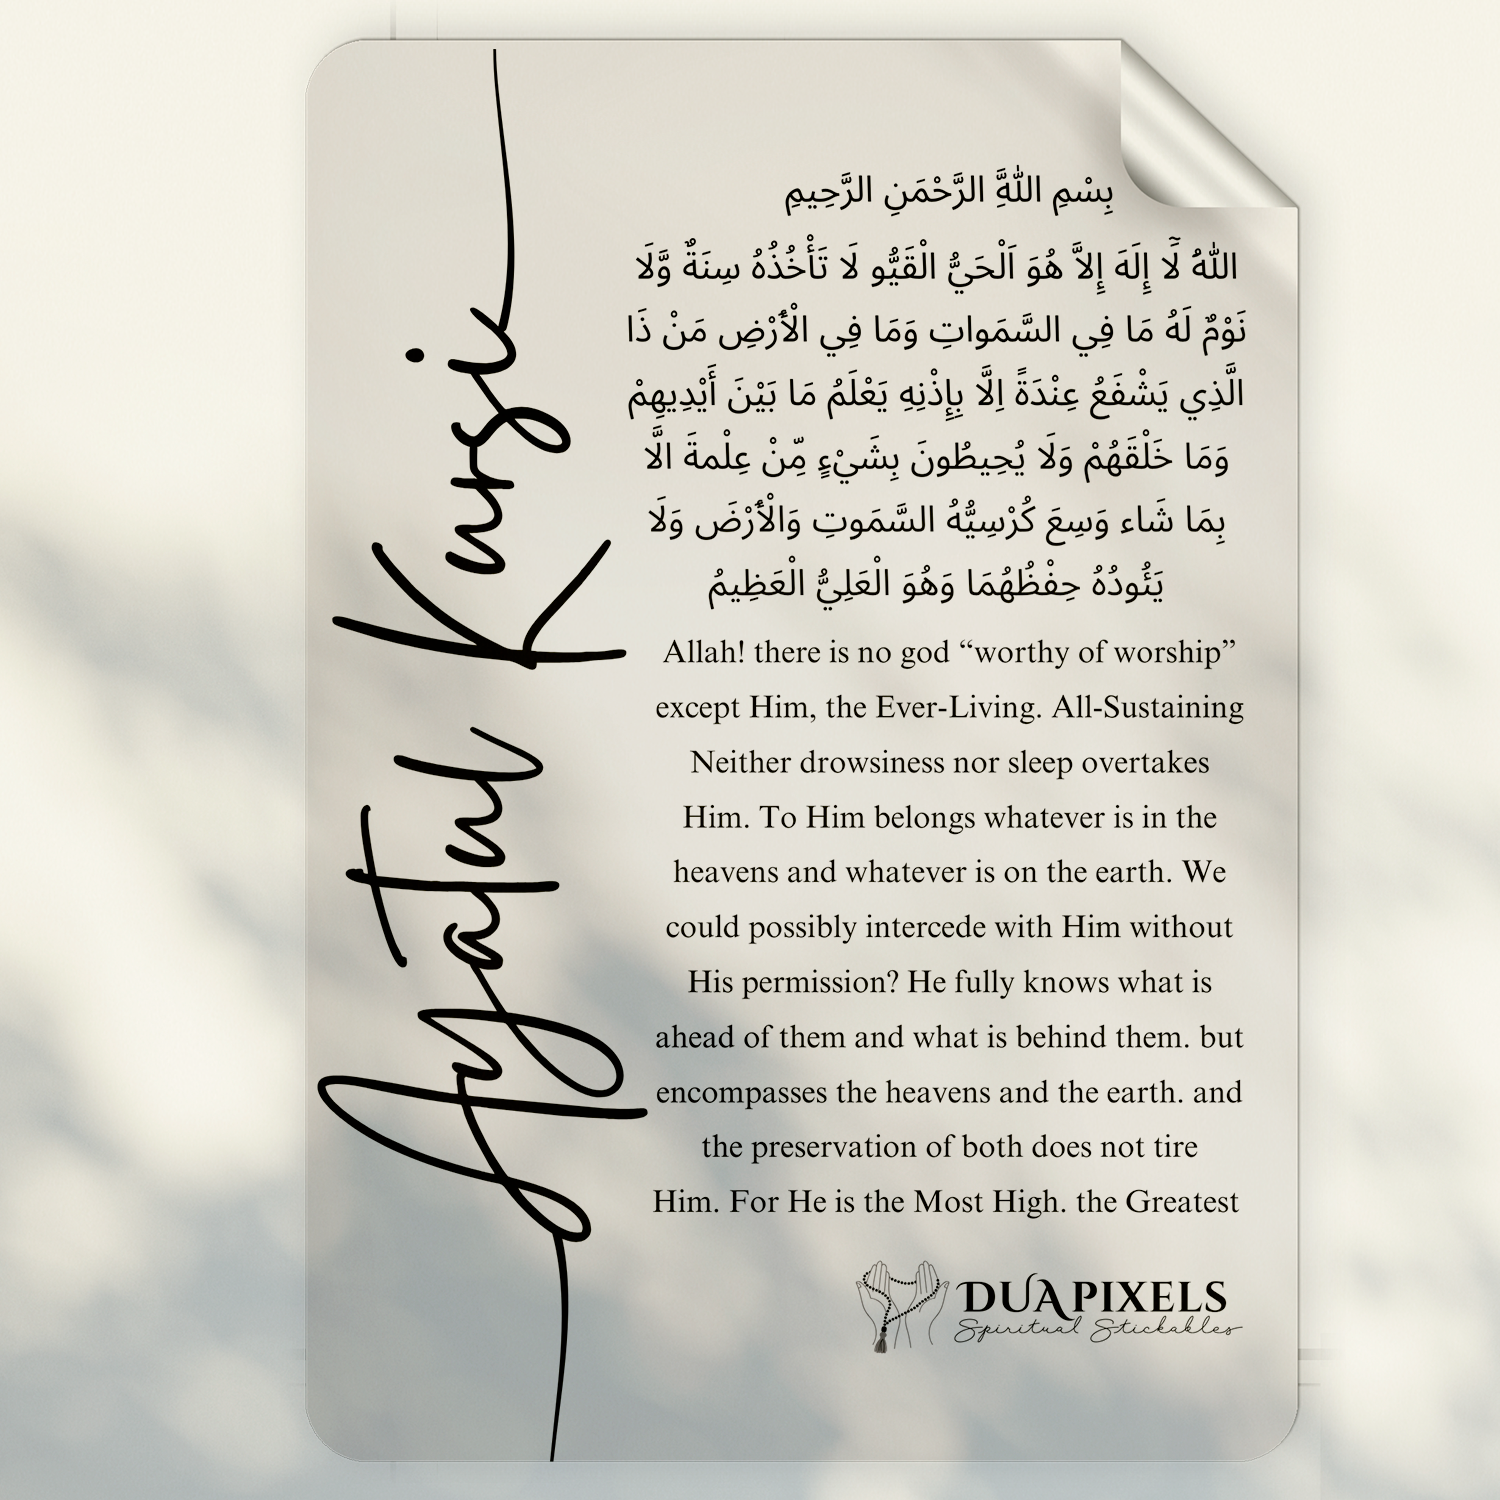 Ayatul Kursi
بِسْمِ اللَّهِ الرَّحْمَنِ الرَّحِيمِ
اللّٰهُ لَٓا إِلَهَ إِلاَّ هُوَ اَلْحَيُّ الْقَيُّو لَا تَأْخُذُهُ سِنَةٌ وَّلَا
نَوْمٌ لَهُ مَا فِي السَّمَواتِ وَمَا فِي الْأَرْضِ مَنْ ذَا
الَّذِي يَشْفَعُ عِنْدَةً اِلَّا بِإِذْنِهِ يَعْلَمُ مَا بَيْنَ أَيْدِيهِمْ
وَمَا خَلْقَهُمْ وَلَا يُحِيطُونَ بِشَيْءٍ مِّنْ عِلْمةَ الَّا
بِمَا شَاء وَسِعَ كُرْسِيُّهُ السَّمَوتِ وَالْأَرْضَ وَلَا
يَئُودُهُ حِفْظُهُمَا وَهُوَ الْعَلِيُّ الْعَظِيمُ
Allah! there is no god “worthy of worship”
except Him, the Ever-Living. All-Sustaining
Neither drowsiness nor sleep overtakes
Him. To Him belongs whatever is in the
heavens and whatever is on the earth. We
could possibly intercede with Him without
His permission? He fully knows what is
ahead of them and what is behind them. but
encompasses the heavens and the earth. and
the preservation of both does not tire
Him. For He is the Most High. the Greatest
DUAPIXELS
Spiritual Stickables